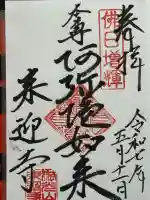 奉拝
令和七年
五月十一日
佛日増輝
本尊
阿弥陀如来
来迎寺